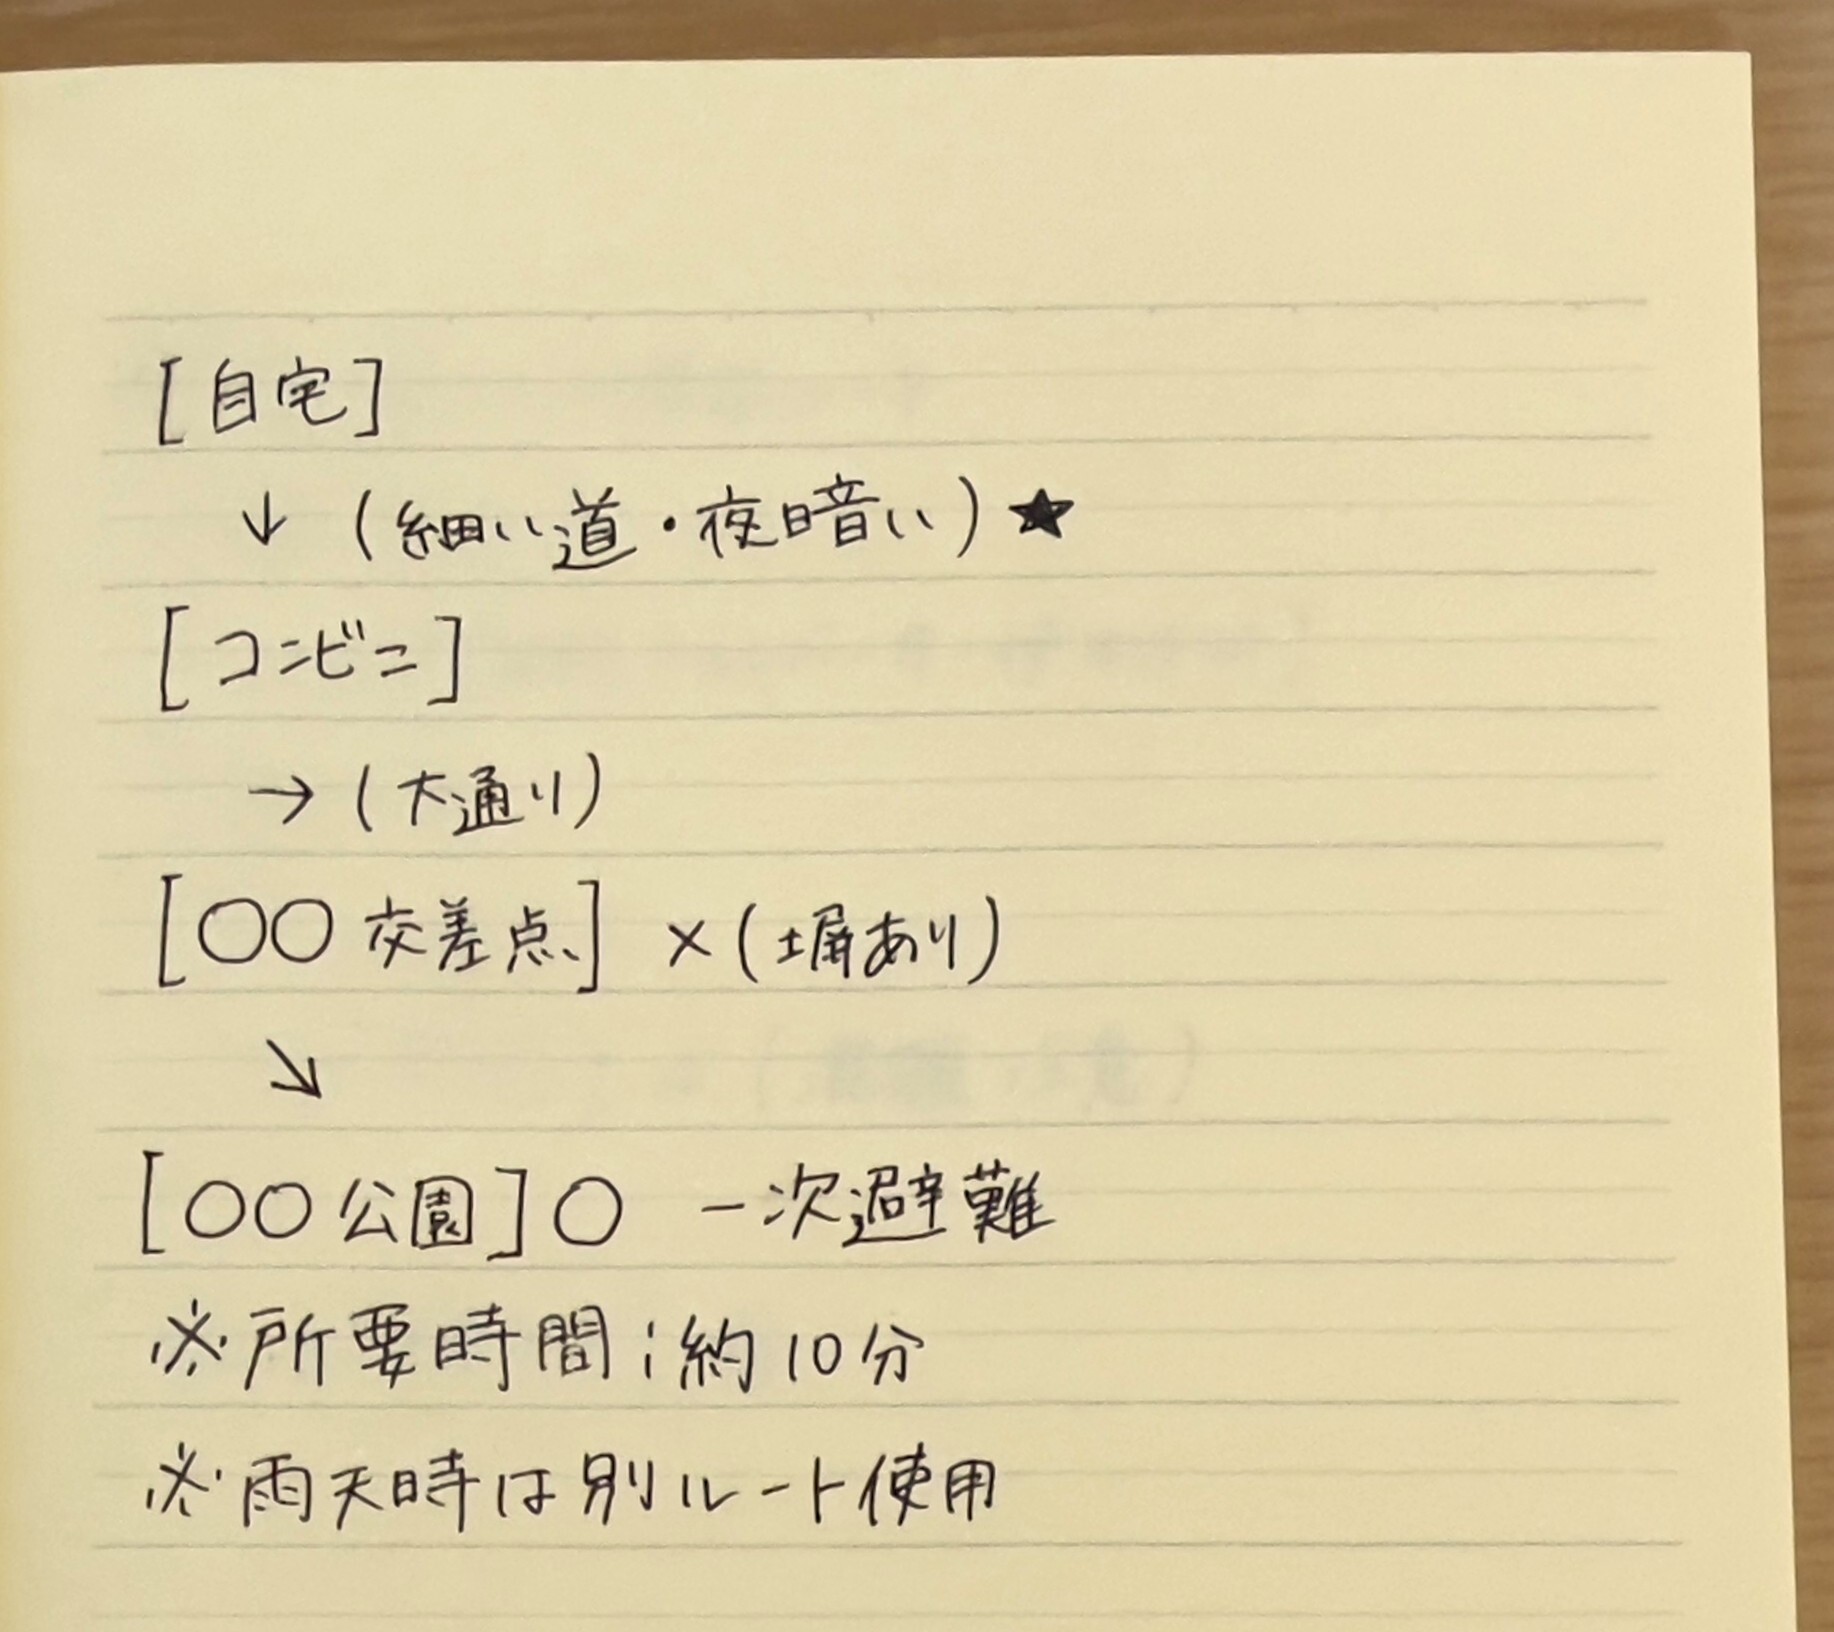 [自宅]
↓ (細い道・夜暗い) ★
[コンビニ]
→ (大通り)
[〇〇交差点] × (塀あり)
↘
[〇〇公園] 〇 一次避難
※所要時間:約10分
※雨天時は別ルート使用